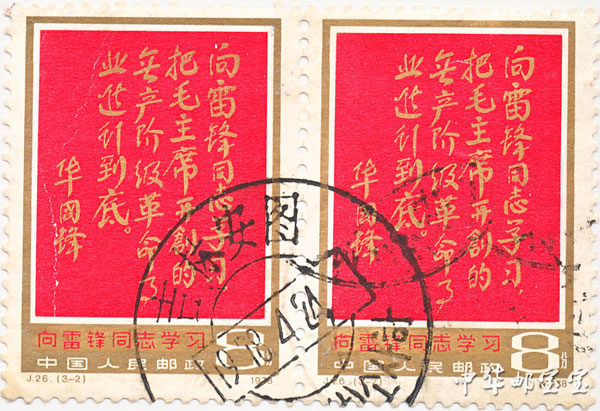 向雷锋同志学习,
把毛主席开創的
無产阶级革命事
业進行到底。
华國锋
向雷锋同志学习
中国人民邮政
8分
J.26.(3-2)
1978
向雷锋同志学习,
把毛主席开創的
無产阶级革命事
业進行到底。
华國锋
向雷锋同志学习
中国人民邮政
8分
J.26.
安图
中华邮宝宝